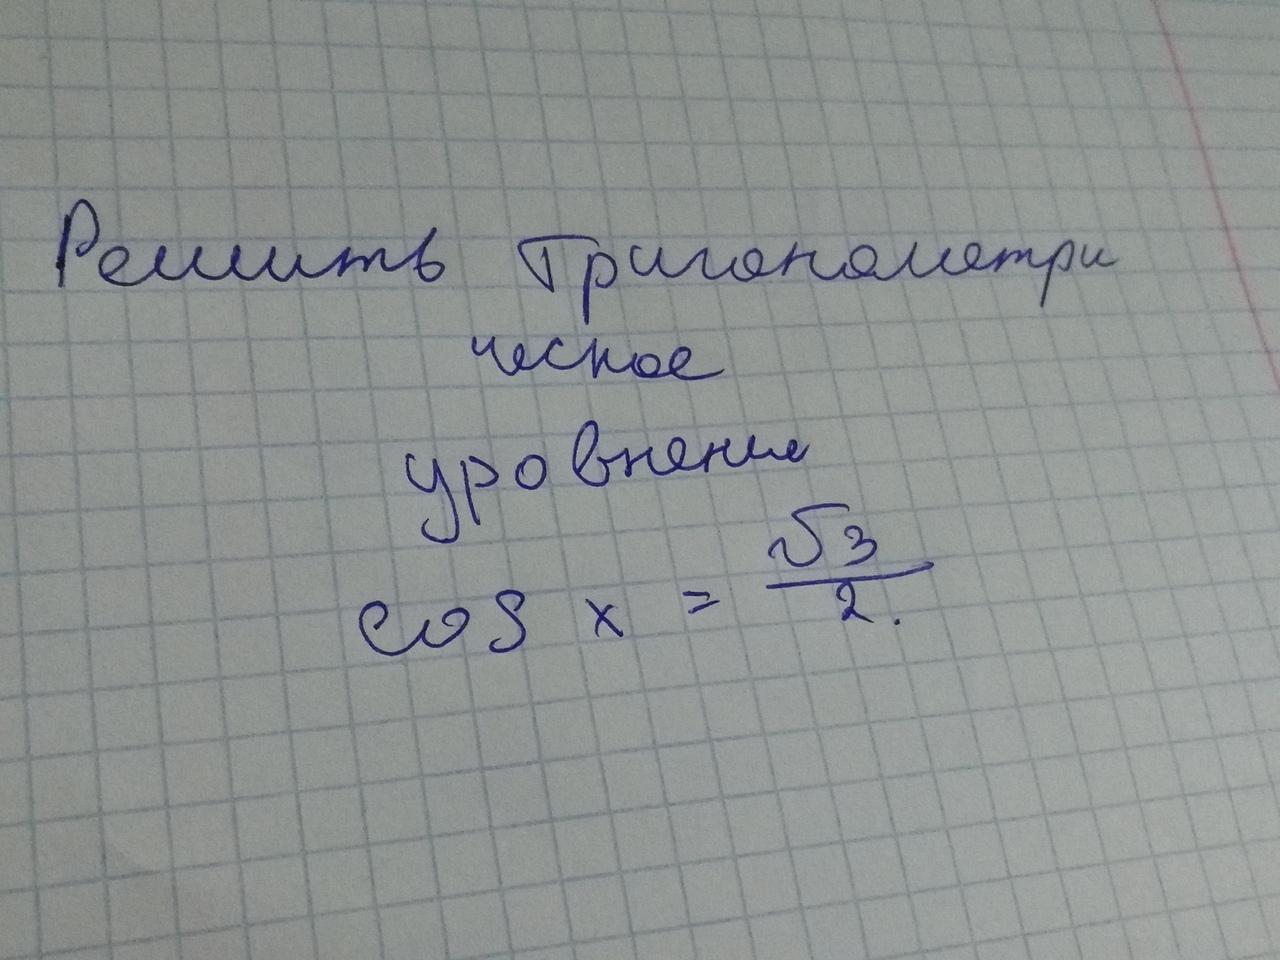 Решить тригонометри
ческое
уровнения
cos x = √3/2.